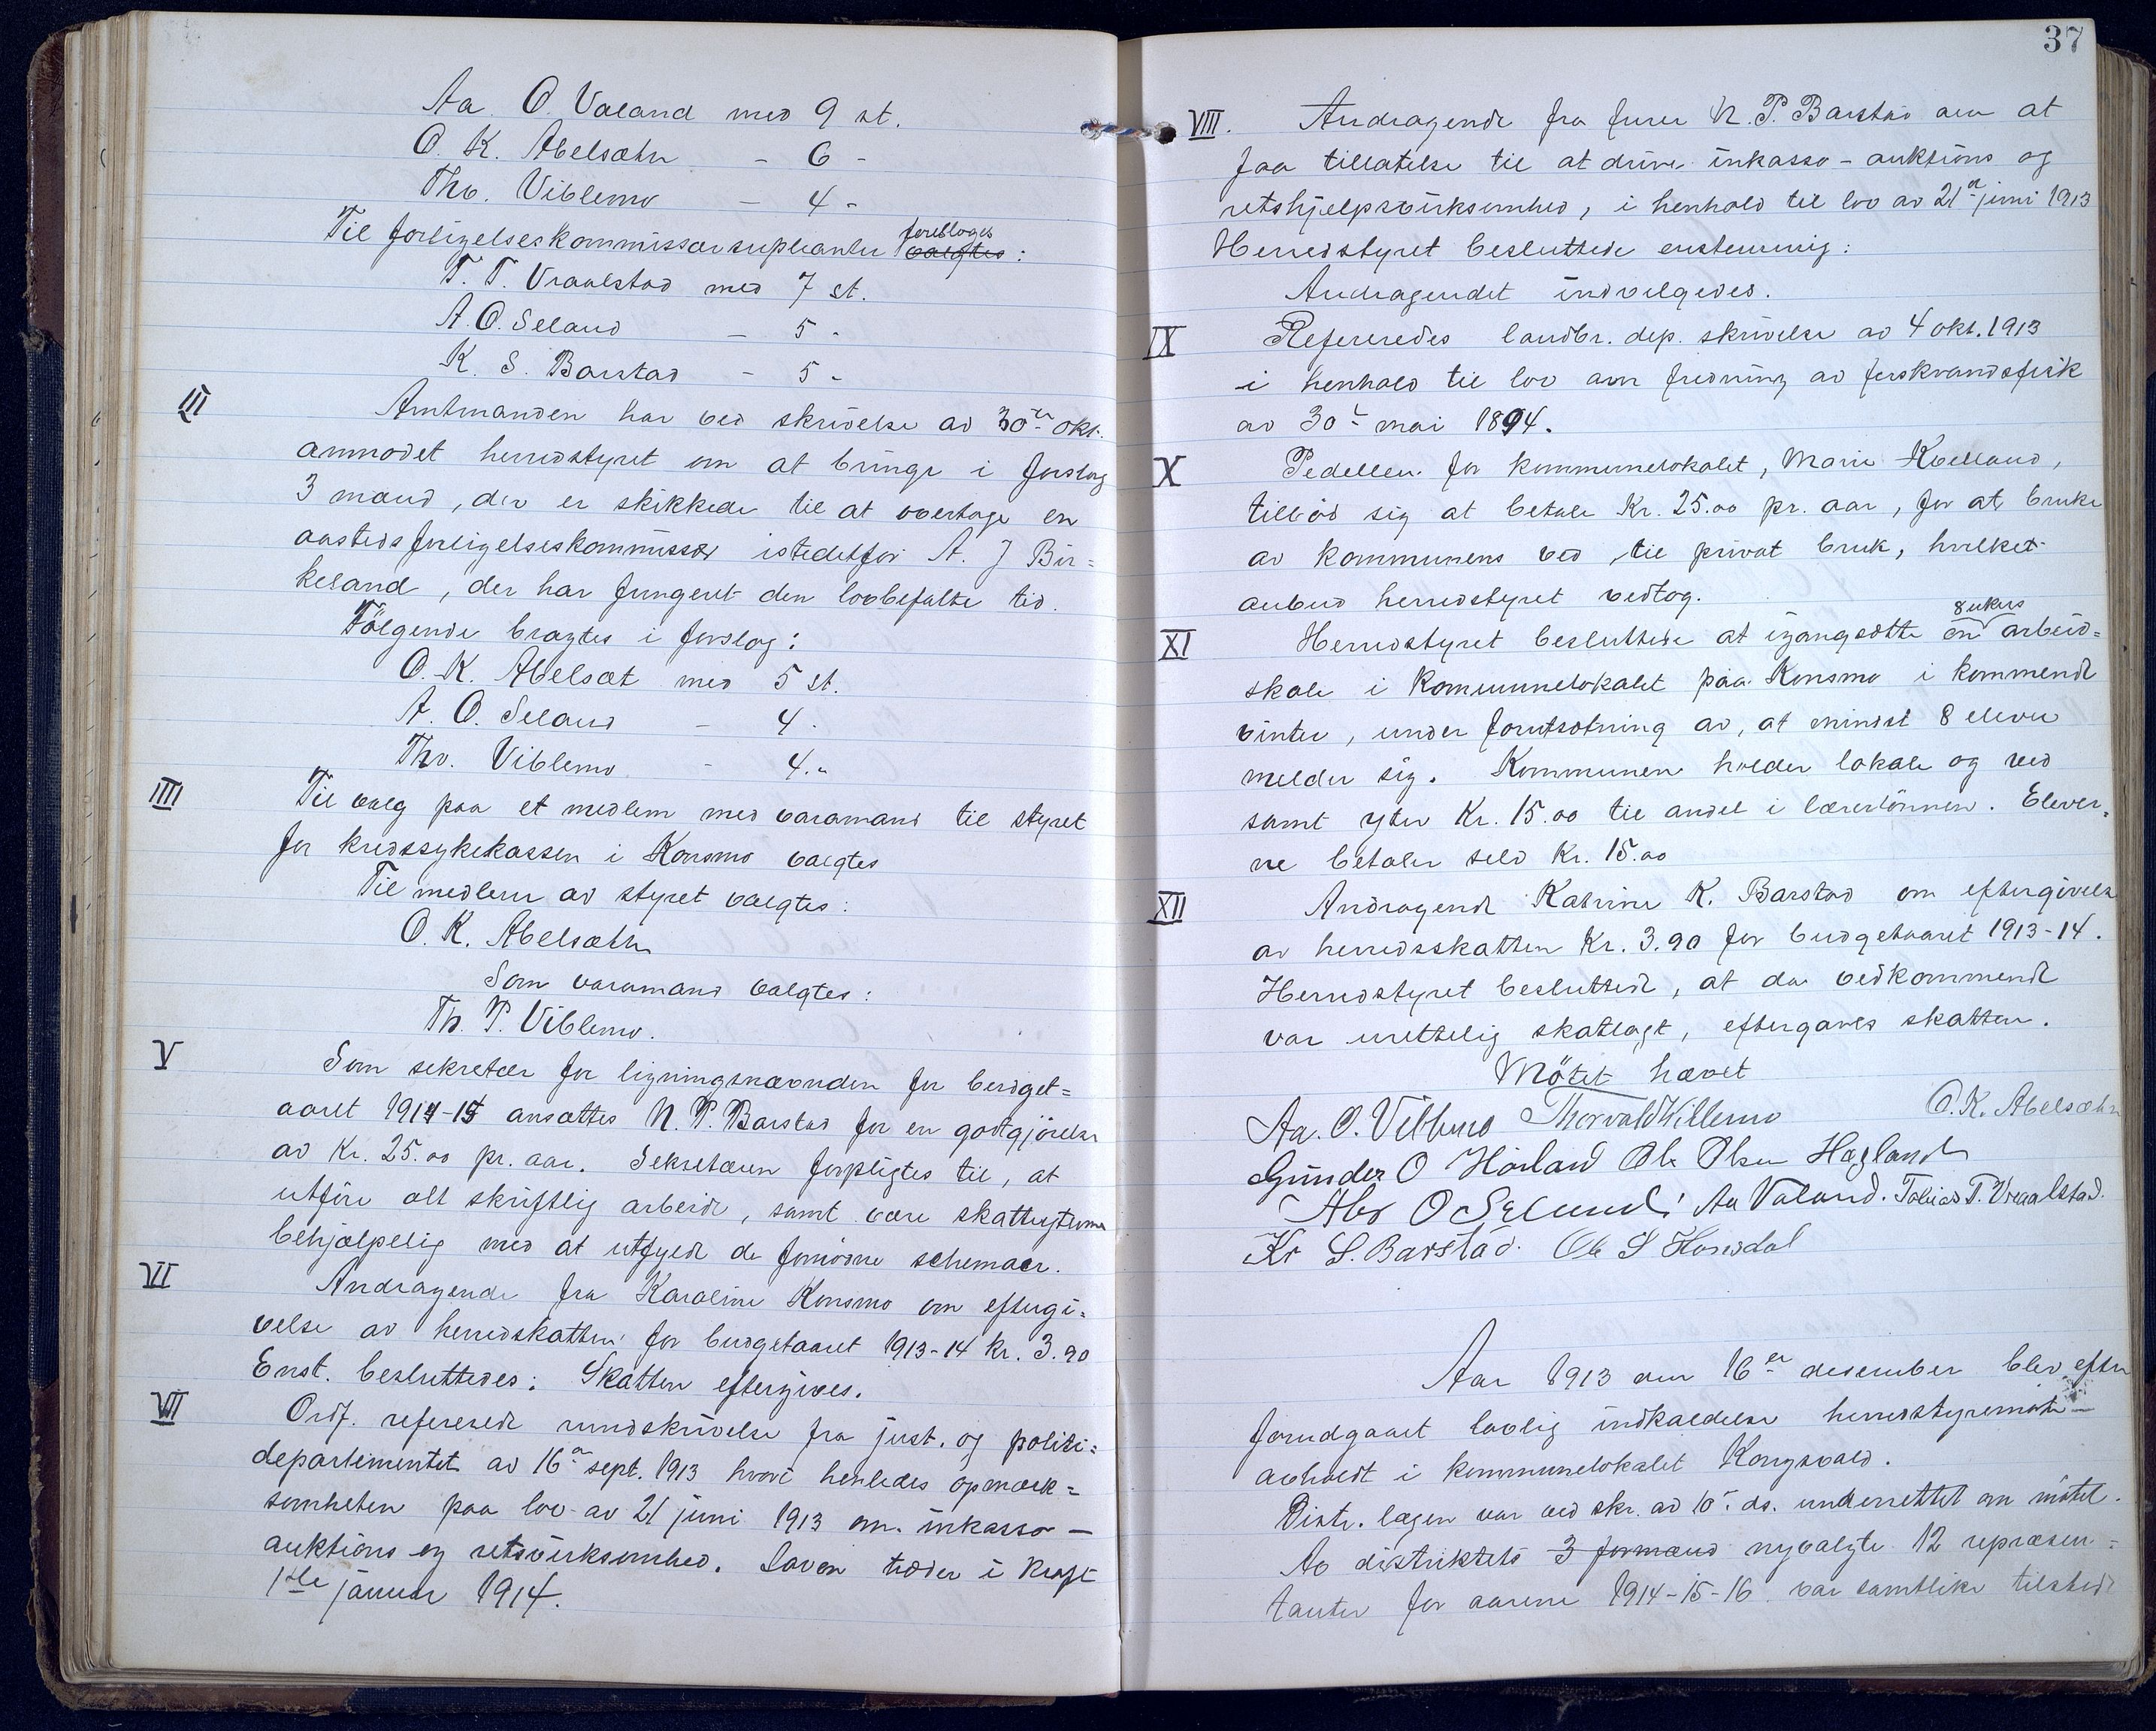 Aa. O. Valand med 9 st.
O. K. Abelsæth - 6 -
Thv. Viblemo - 4 -
foresloges
Til forligelseskommissærsupleanter valgtes :
T. T. Vraalstad med 7 st.
A. O. Seland - 5 -
K. S. Barstad - 5 -
III
Amtmanden har ved skrivelse av 30te okt.
anmodet herredstyret om at bringe i forslag
3 mand, der er skikkede til at overtage en
aastedsforligelseskommissær istedetfor A. J Bir=
keland, der har fungeret den lovbefalte tid.
Følgende bragtes i forslag :
O. K. Abelsæt med 5 st.
A. O. Seland - 4 -
Thv. Viblemo - 4. -
IIII
Til valg paa et medlem med varamand til styret
for kredssykekassen i Konsmo valgtes
Til medlem av styret valgtes :
O. K. Abelsæth
Som varamand valgtes :
Th. T. Viblemo.
V
Som sekretær for ligningsnævnden for budget=
aaret 1914-15 ansættes N. P. Barstad for en godtgjörelse
av Kr. 25.00 pr. aar. Sekretæren forpligtes til, at
utföre alt skriftlig arbeide, samt være skatteyterne
behjælpelig med at utfylde de fornödne schemaer.
VI
Andragende fra Karoline Konsmo om eftergi=
velse av herredskatten for budgetaaret 1913-14 kr. 3.90
Enst. besluttedes : Skatten eftergives.
VII
Ordf. refererede rundskrivelse fra just. og politi=
departementet av 16de sept. 1913 hvori henledes opmærk=
somheten paa lov av 21 juni 1913 om inkasso -
auktions og retsvirksomhed. Loven træder i kraft
1ste januar 1914.
37
VIII. Andragende fra furer N. P. Barstad om at
faa tillatelse til at drive inkasso - auktions og
retshjelpsvirksomhed, i henhold til lov av 21de juni 1913
Herredstyret besluttede enstemmig :
Andragendet indvilgedes.
IX
Refereredes landbr. dep. skrivelse av 4 okt. 1913
i henhold til lov om fredning av ferskvandsfisk
av 30te mai 1894.
X
Pedellen for kommunelokalet, Marie Kvelland,
tilböd sig at betale Kr. 25.00 pr. aar, for at bruke
av kommunens ved til privat bruk, hvilket
anbud herredstyret vedtog.
8 ukers
XI
Herredstyret besluttede at igangsætte en arbeid=
skole i kommunelokalet paa Konsmo i kommende
vinter, under forutsætning av, at mindst 8 elever
melder sig. Kommunen holder lokale og ved
samt yter Kr. 15.00 til andel i lærerlönnen. Elever=
ne betaler selv Kr. 15.00
XII
Andragende Katrine K. Barstad om eftergivelse
av herredsskatten Kr. 3.90 for budgetaaret 1913-14.
Herredstyret besluttede, at da vedkommende
var urettelig skatlagt, eftergaves skatten.
Mötet hævet
Aa. O. Viblemo Thorvald Viblemo O. K. Abelsæth
Gunder O Hörland Ole Olsen Hægland
Abr O Seland Aa Valand. Tobias T. Vraalstad.
Kr S. Barstad. Ole S Homsdal
Aar 1913 den 16de desember blev efter
forudgaaet lovlig indkaldelse herredstyremöte
avholdt i kommunelokalet Kongsvold.
Distr. lægen var ved skr. av 10. ds. underrettet om mötet.
Av distriktets 3 formænd nyvalgte 12 repræsen=
tanter for aarene 1914-15-16 var samtlike tilstede